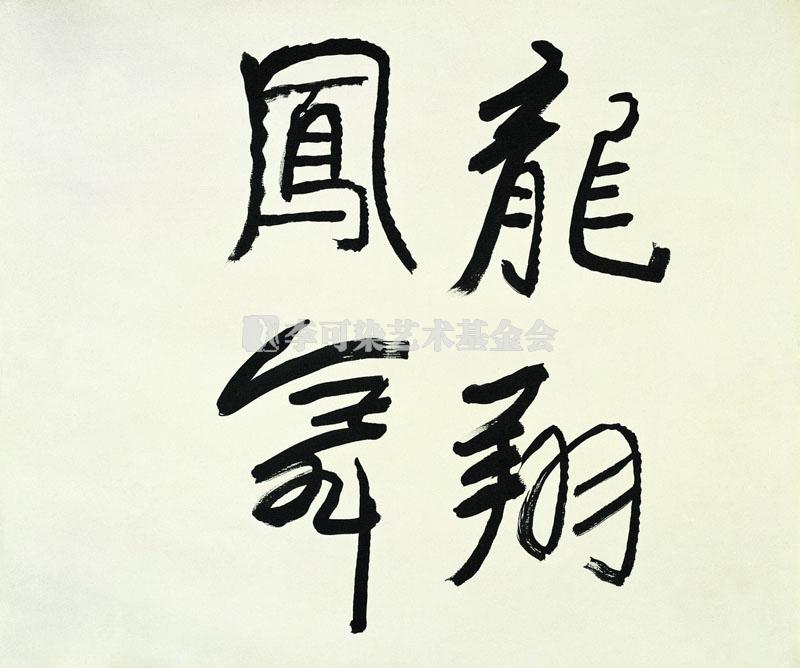 龍翔
鳳舞
李可染艺术基金会